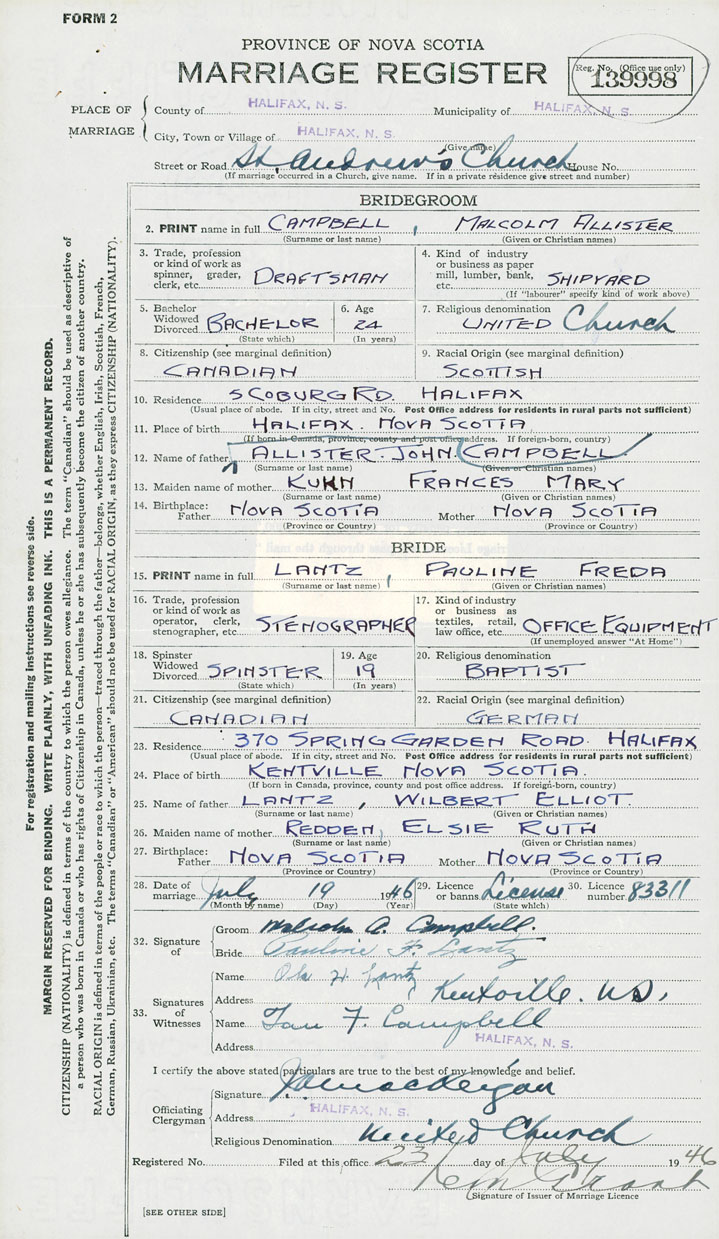 FORM 2
PROVINCE OF NOVA SCOTIA
MARRIAGE REGISTER
Reg. No. (Office use only)
139998
PLACE OF MARRIAGE
County of HALIFAX, N. S. Municipality of HALIFAX, N. S.
City, Town or Village of HALIFAX, N. S.
(Give name)
Street or Road St. Andrew's Church House No.
(If marriage occurred in a Church, give name. If in a private residence give street and number)
BRIDEGROOM
2. PRINT name in full CAMPBELL, MALCOLM ALLISTER
(Surname or last name) (Given or Christian names)
3. Trade, profession or kind of work as spinner, grader, clerk, etc. DRAFTSMAN
4. Kind of industry or business as paper mill, lumber, bank, etc. SHIPYARD
(If "labourer" specify kind of work above)
5. Bachelor Widowed Divorced BACHELOR
(State which)
6. Age 24
(In years)
7. Religious denomination UNITED Church
8. Citizenship (see marginal definition) CANADIAN
9. Racial Origin (see marginal definition) SCOTTISH
10. Residence 5 COBURG RD. HALIFAX
(Usual place of abode. If in city, street and No. Post Office address for residents in rural parts not sufficient)
11. Place of birth HALIFAX NOVA SCOTIA
(If born in Canada, province, county and post office address. If foreign-born, country)
12. Name of father ALLISTER JOHN CAMPBELL
(Surname or last name) (Given or Christian names)
13. Maiden name of mother KUHN FRANCES MARY
(Surname or last name) (Given or Christian names)
14. Birthplace: Father NOVA SCOTIA Mother NOVA SCOTIA
(Province or Country) (Province or Country)
BRIDE
15. PRINT name in full LANTZ, PAULINE FREDA
(Surname or last name) (Given or Christian names)
16. Trade, profession or kind of work as operator, clerk, stenographer, etc. STENOGRAPHER
17. Kind of industry or business as textiles, retail, law office, etc. OFFICE EQUIPMENT
(If unemployed answer "At Home")
18. Spinster Widowed Divorced SPINSTER
(State which)
19. Age 19
(In years)
20. Religious denomination BAPTIST
21. Citizenship (see marginal definition) CANADIAN
22. Racial Origin (see marginal definition) GERMAN
23. Residence 370 SPRING GARDEN ROAD HALIFAX
(Usual place of abode. If in city, street and No. Post Office address for residents in rural parts not sufficient)
24. Place of birth KENTVILLE NOVA SCOTIA.
(If born in Canada, province, county and post office address. If foreign-born, country)
25. Name of father LANTZ, WILBERT ELLIOT
(Surname or last name) (Given or Christian names)
26. Maiden name of mother REDDEN, ELSIE RUTH
(Surname or last name) (Given or Christian names)
27. Birthplace: Father NOVA SCOTIA Mother NOVA SCOTIA
(Province or Country) (Province or Country)
28. Date of marriage July 19 1946
(Month by name) (Day) (Year)
29. Licence or banns License
(State which)
30. Licence number 83311
32. Signature of
Groom Malcolm A. Campbell.
Bride Pauline F. Lantz
33. Signatures of Witnesses
Name H. Lantz
Address Kentville. N.S.
Name Ian F. Campbell
Address HALIFAX, N. S.
I certify the above stated particulars are true to the best of my knowledge and belief.
Officiating Clergyman
Signature
Address HALIFAX, N. S.
Religious Denomination United Church
Registered No. Filed at this office 23 day of July 1946
(Signature of Issuer of Marriage Licence
[SEE OTHER SIDE]
For registration and mailing instructions see reverse side.
MARGIN RESERVED FOR BINDING. WRITE PLAINLY, WITH UNFADING INK. THIS IS A PERMANENT RECORD.
CITIZENSHIP (NATIONALITY) is defined in terms of the country to which the person owes allegiance. The term "Canadian" should be used as descriptive of
a person who was born in Canada or who has rights of Citizenship in Canada, unless he or she has subsequently become the citizen of another country.
RACIAL ORIGIN is defined in terms of the people or race to which the person—traced through the father—belongs, whether English, Irish, Scottish, French,
German, Russian, Ukrainian, etc. The terms "Canadian" or "American" should not be used for RACIAL ORIGIN, as they express CITIZENSHIP (NATIONALITY).